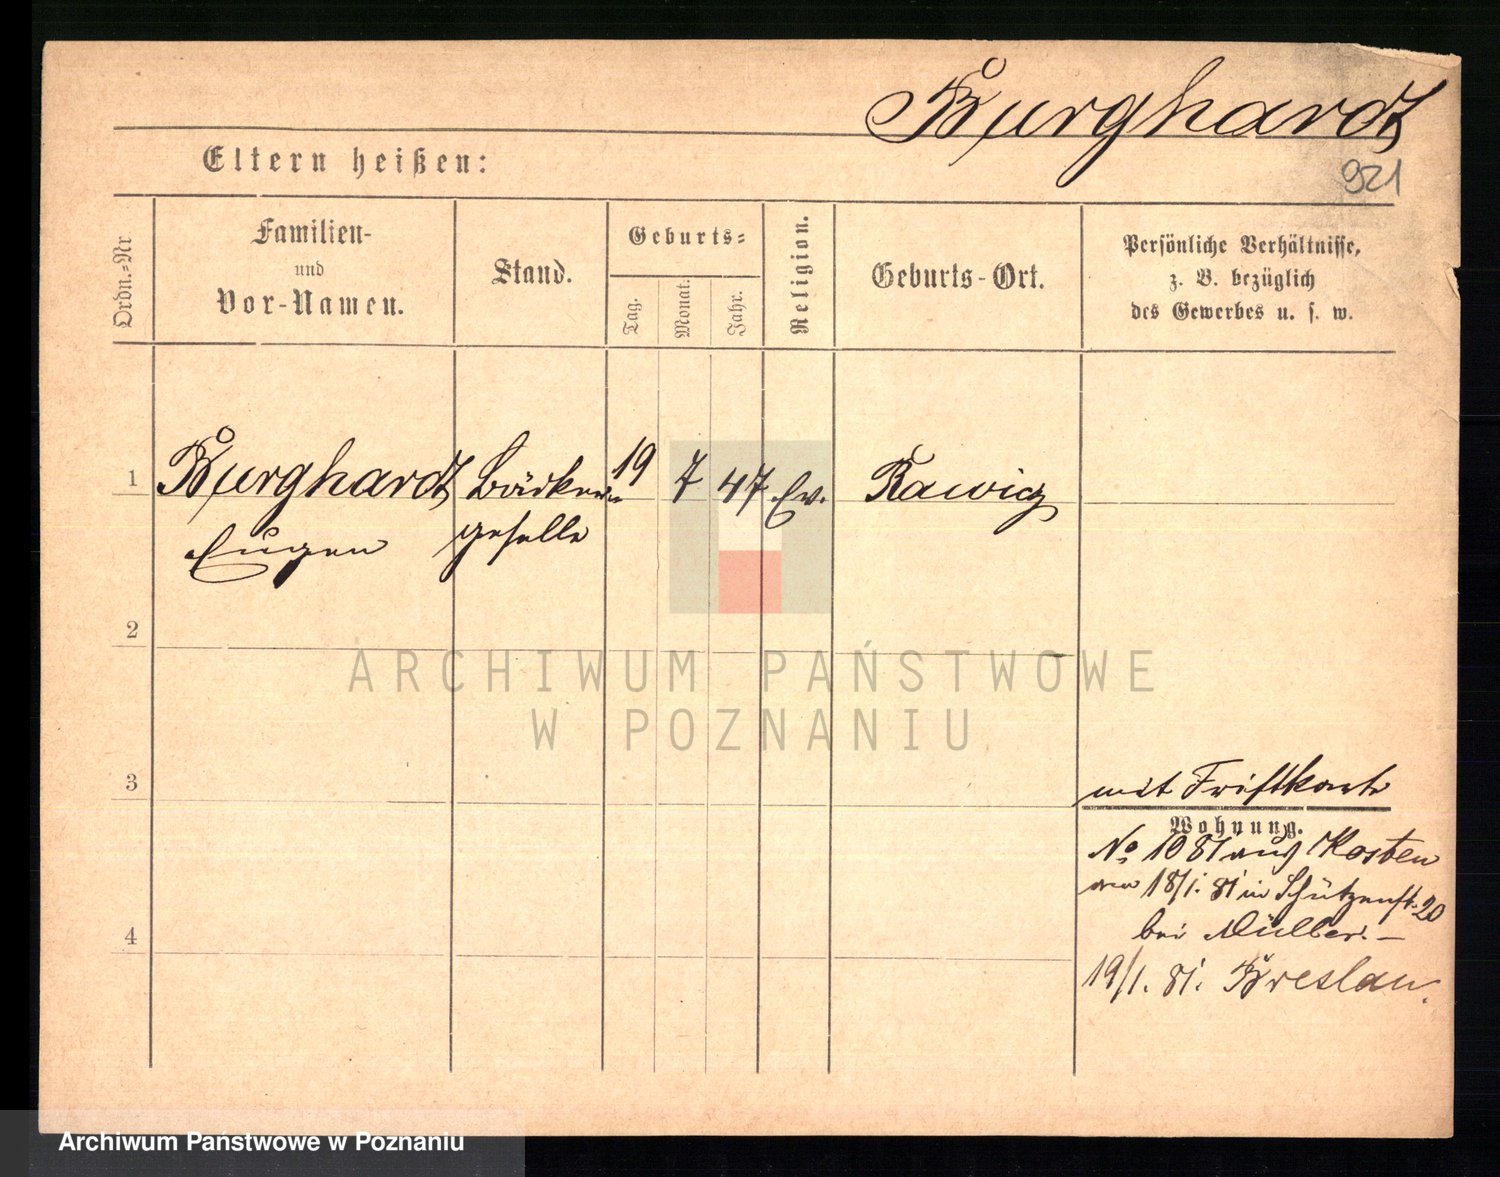 Burghardt
921
Eltern heißen:
Ordn.-Nr
Familien-
und
Vor-Namen.
Stand.
Geburts-
Tag.
Monat.
Jahr.
Religion.
Geburts-Ort.
Persönliche Verhältnisse,
z. B. bezüglich
des Gewerbes u. s. w.
1 Burghardt Bäcker- 19 7 47 Ev. Rawicz
Eugen geselle
2
ARCHIWUM PAŃSTWOWE
W POZNANIU
3
mit Fristkarte
Wohnung.
No 1081 aus Kosten
18/1. 81 in Schützenst. 20
bei Müller. –
4
19/1. 81. Breslau.
Archiwum Państwowe w Poznaniu